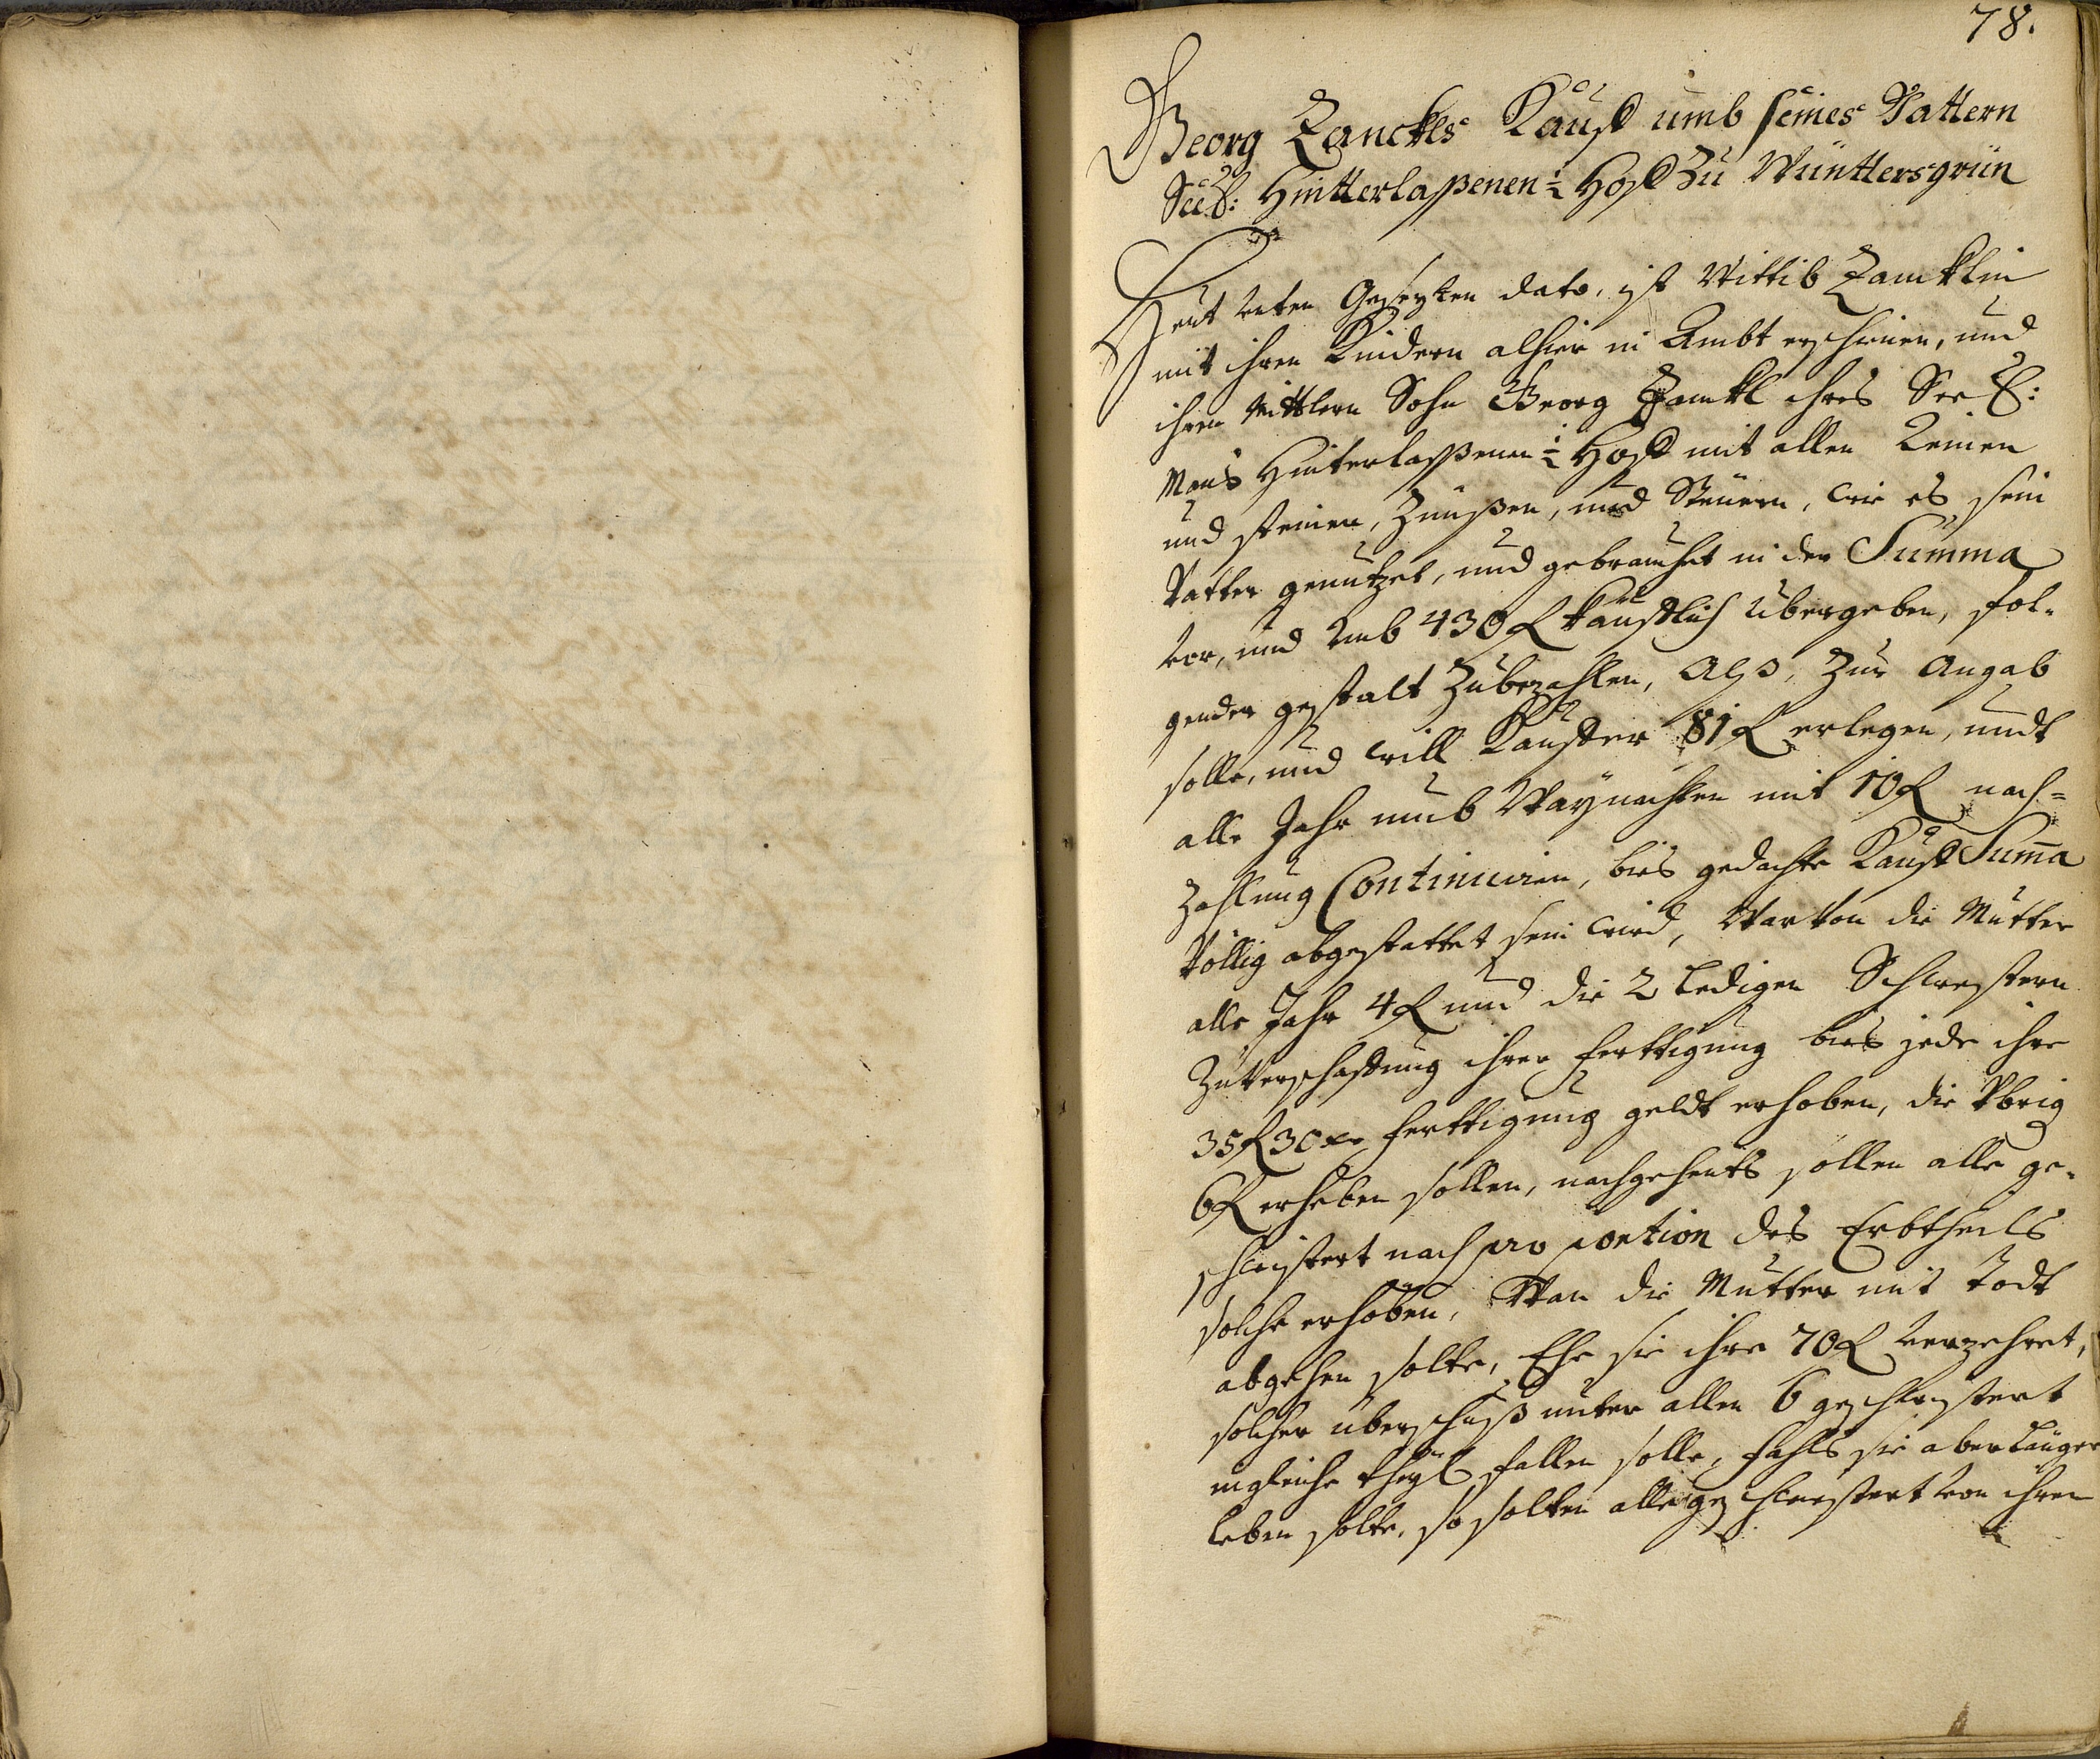 78.
Georg Zanckls Kauff umb seines Vattern
Seel: Hintterlaßenen ½ Hoff Zu Wünttersgrün
Heut unten Gesezten dato, ist Wittib Zancklin
mit ihren Kindern alhier in Ambt erschienen, und
ihren Mittlern Sohn Georg Zanckl ihres Seel:
Mans Hinterlaßenen ½ Hoff mit allen Reinen
und steinen, Zünßen, und Steuern, wie es sein
Vatter genutzet, und gebrauchet in der Summa
vor, und Umb 430 f kaufflich übergeben, fol-
gender gestalt Zubezahlen, Alß, Zur Angab
solle, und will Kauffer 81 f erlegen, undt
alle Jahr umb Weynachten mit 10 f nach=
Zahlung Continuiren, bies gedachte Kauff Summa
Völlig abgestattet sein wird, Warvon die Mutter
alle Jahr 4 f und die 2 Ledigen Schwestern
Zu Verschaffung ihrer ferttigung bies jede ihre
35 f 30 xr ferttigung geldt erhoben, die Vbrig
6 f erheben sollen, nachgehents sollen alle ge-
schwistert nach proportion des Erbtheils
solche erhoben, Wan die Mutter mit Todt
abgehen solte, Ehe sie ihre 70 f verzehret,
solcher überschuß unter allen 6 geschwistert
in gleiche theyl fallen solle, fahls sie aber länger
leben solte, so solten alle geschwistert von ihren